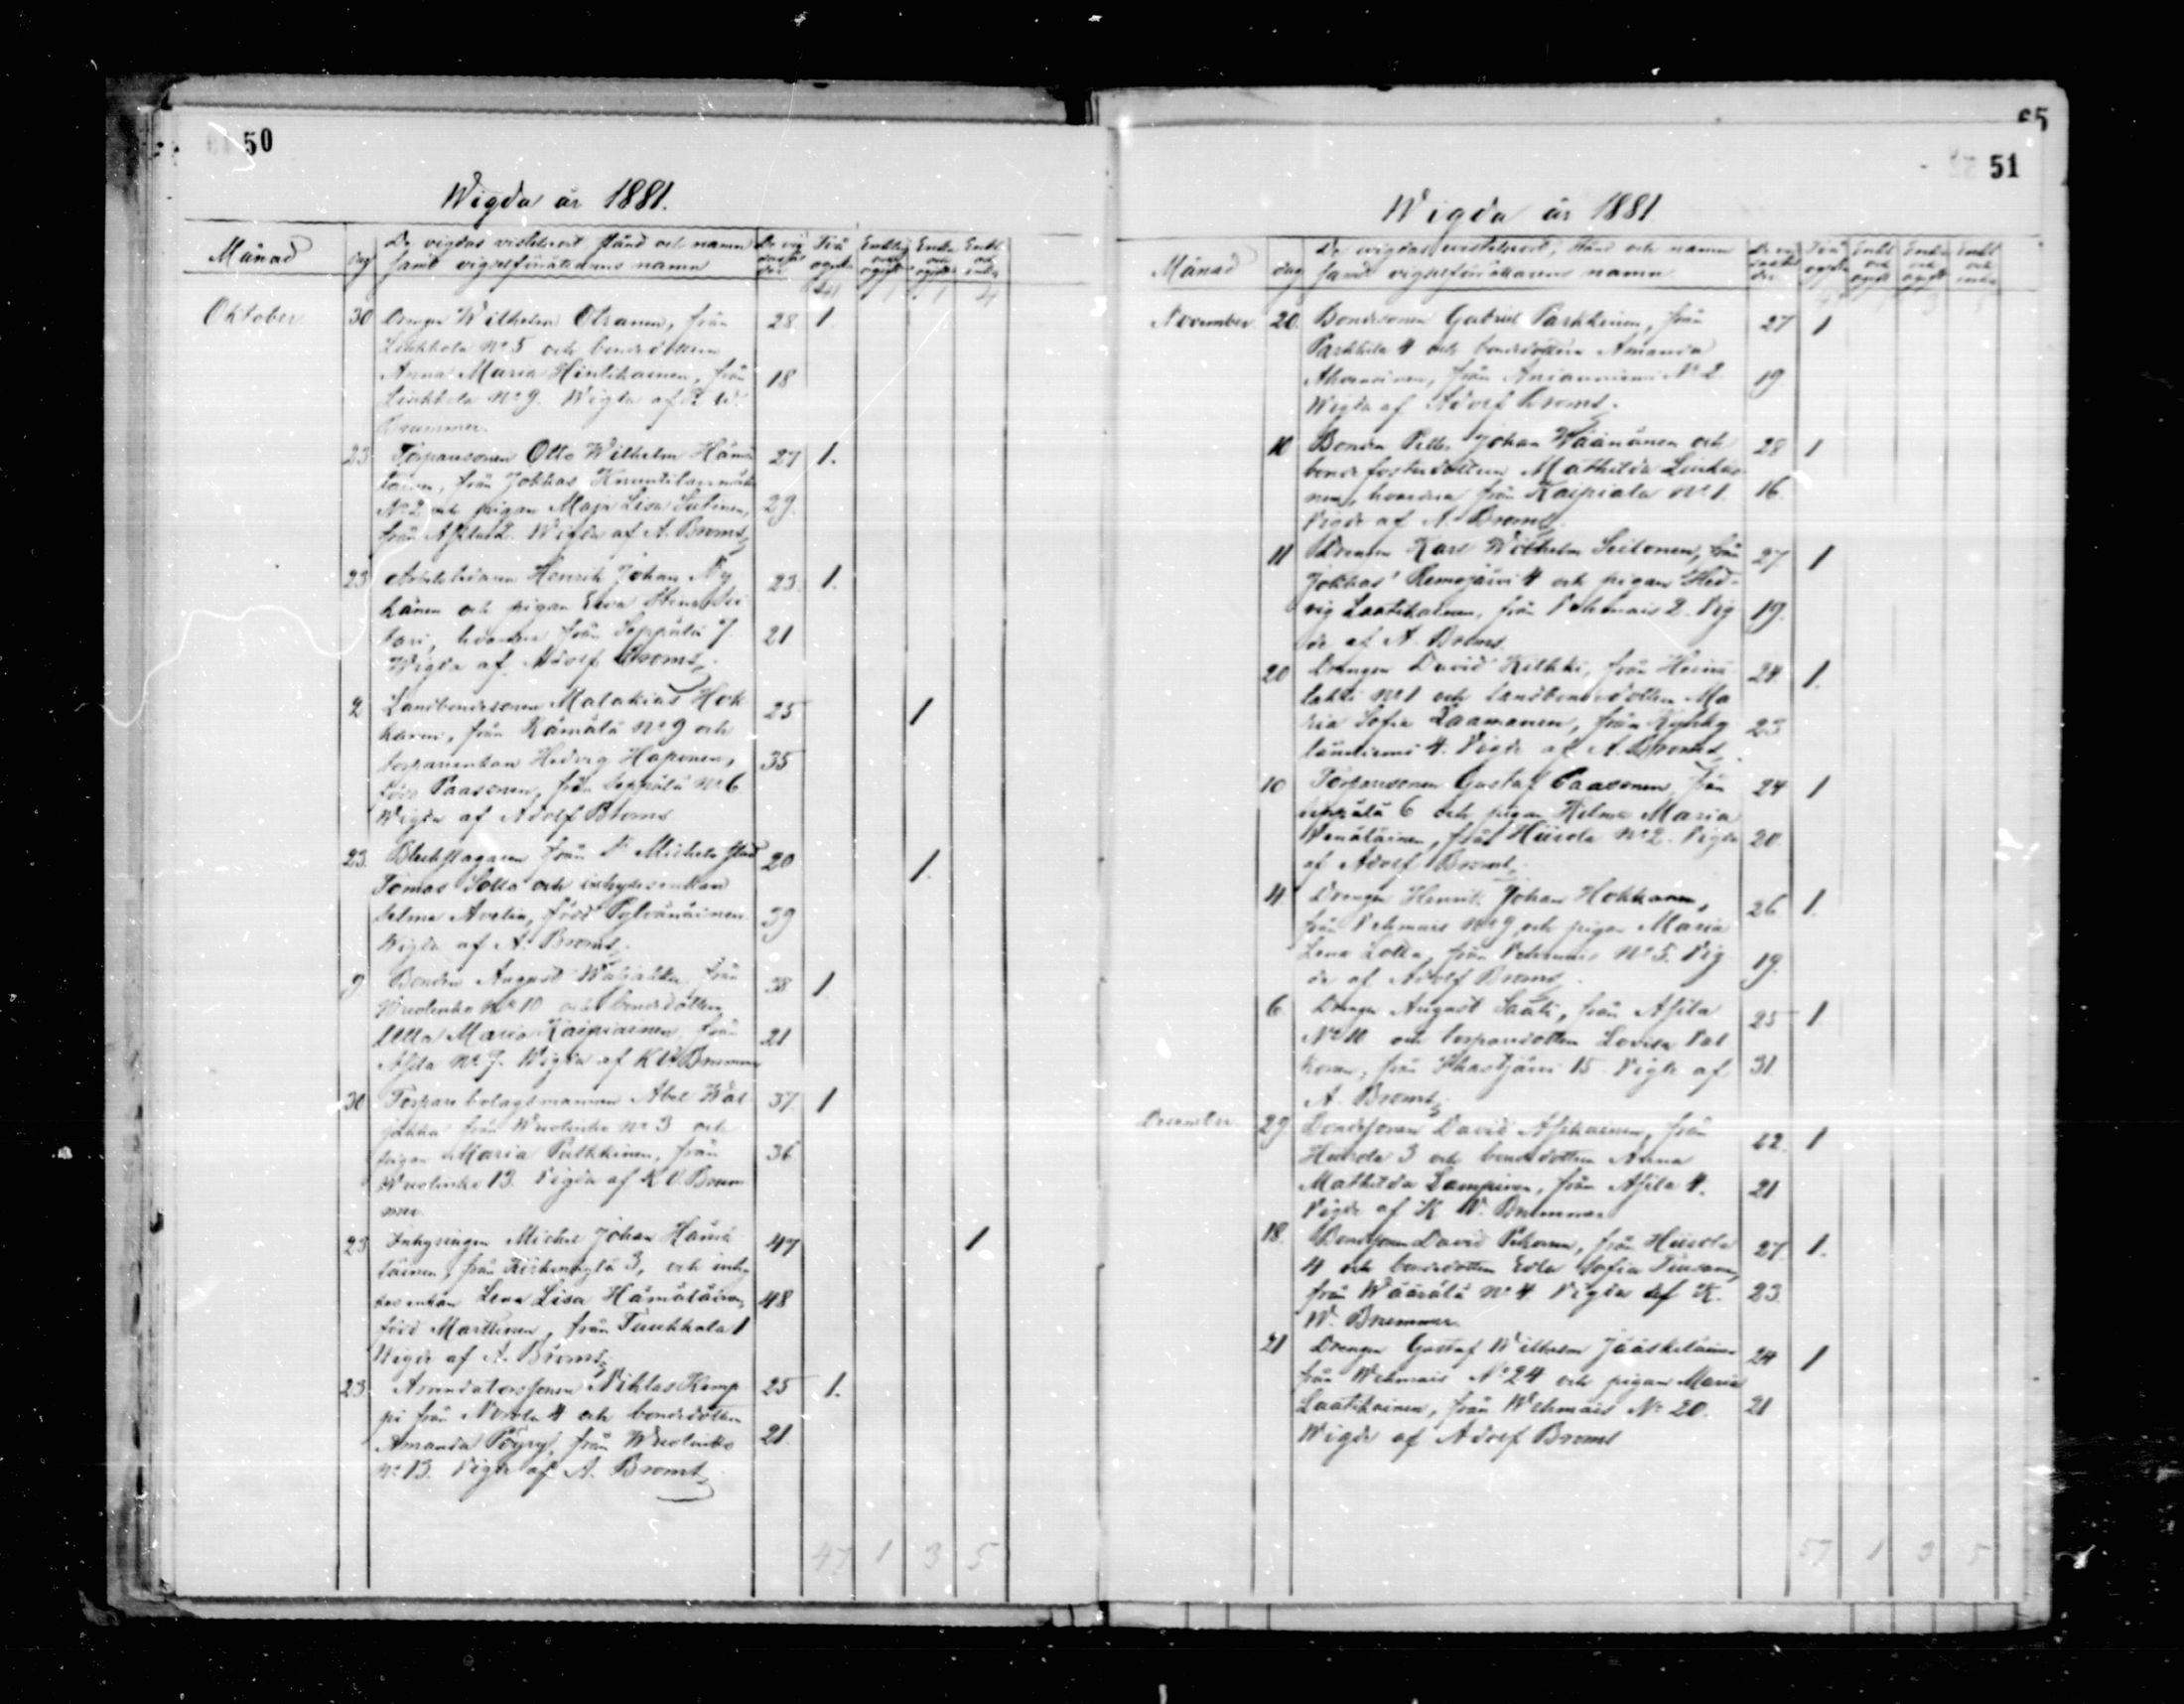 50
Wigda år 1881.
Månad
dag
De vigdas vistelseort, stånd och namn
samt vigselförrättarens namn
De vig
das ål
der
Två
ogifta
Enkling
och
ogift
Enka
och
ogift
Enkl
och
enka
41 1 1 4
Oktober 30 Drengen Wilhelm Olsanen, från 28. 1.
Liukkola No 5 och bondedottern
Anna Maria Hintikainen, från 18
Liukkola No 9. Wigda af K. W.
Brummer.
23 Torparesonen Otto Wilhelm Hämä 27 1.
läinen, från Jokkas
No 2 och pigan Maja Lisa Sutinen, 29.
från Asila 2. Wigda af A. Broms.
23 Henrik Johan Ny 23. 1.
känen och pigan Eva Stina
tari, från Seppälä 7 21
Wigda af Adolf Broms.
2 Landbondesonen Malakias Hok 25. 1
kanen, från Kämälä No 9 och
torpareenkan Hedvig Haponen, 35
född Paasonen, från Seppälä No 6
Wigda af Adolf Broms
23. Bleckslagaren från St Michels stad 20 1.
Tomas Sotta och inhysesenkan
Selma Avelin, född Pylvänäinen 39
Wigda af A. Broms.
9 Bonden August Waljakka, från 38 1.
Wuolinko No 10 och bondedottern
Ulla Maria Kaipiainen, från 21
Asila No 7. Wigda af K W Brummer
30 Torpare bolagsmannen Abel Wal 37 1
jakka från Wuolinko No 3 och
pigan Maria Pulkkinen, från 36
Wuolinko 13. Vigda af K V. Brum
mer.
23 Inhysingen Michel Johan Hämä 47 1
läinen, från Kirkonkylä 3, och inhy
sesenkan Lena Lisa Hämäläinen, 48
född Marttinen, från Tuukkala 1
Wigde af A. Broms.
23. Arrendatorssonen Niklas Kemp 25 1.
pi från Norola 4 och bondedottern
Amanda Pöyry, från Wuolinko 21.
No 13. Vigde af A. Broms.
47 1 3 5
65
51
Wigda år 1881
Månad
dag
De vigdas vistelseort, stånd och namn
samt vigselförrättarens namn
De vig
das ål
der
Två
ogifta
Enkl
och
ogift
Enka
och
ogift
Enkl
och
enka
47 1 3 5
November. 20. Bondesonen Gabriel Parkkinen, från 27 1
Parkkila 4 och bondedottern Amanda
Ahvenainen, från Anianniemi No 2. 19.
Wigda af Adolf Broms.
10 Bonden Petter Johan Wäänänen och 28 1
bonde fosterdottern Mathilda Liukko
nen, hvardera från Kaipiala No 1. 16.
Vigde af A. Broms.
11 Drengen Karl Wilhelm Seitonen, från 27 1
Jokkas' Remojärvi 4 och pigan Hed-
vig Laatikainen, från Vehmais 2. Vig 19.
de af A. Broms.
20 Drengen David Kilkki, från Heinä 24. 1.
lahti No 1 och landbondedottern Ma
ria Sofia Laamanen, från Kyhky 23
länniemi 4. Vigde af A. Broms.
10 Torparesonen Gustaf Paasonen, från 24 1
Seppälä 6 och pigan Helma Maria
Venäläinen, från Hiirola No 2. Vigde 20.
af Adolf Broms.
4. Drengen Henrik Johan Hokkanen, 26. 1.
från Vehmais No 9 och pigan Maria
Lena Lotta, från Vehmais No 5. Vig 19.
de af Adolf Broms.
6. Drengen August Sauli, från Asila 25 1
No 10 och torparedottern Lovisa Val
konen, från Ihastjärvi 15. Vigde af 31
A. Broms.
December. 29 Bondesonen David Asikainen, från 22. 1
Hiirola 3 och bondedottern Anna
Mathilda Lampinen, från Asila 4. 21
Vigde af K W. Brummer
18. Bondesonen David Pekonen, från Hiirola 27. 1.
4 och bondedottern Edla Sofia Tiusanen,
från Wäärälä No 4. Vigde af K. 23.
W. Brummer.
21 Drengen Gustaf Wilhelm Jääskeläinen 24 1
från Wehmais No 24 och pigan Maria
Laatikainen, från Wehmais No 20. 21
Wigde af Adolf Broms
57 1 3 5